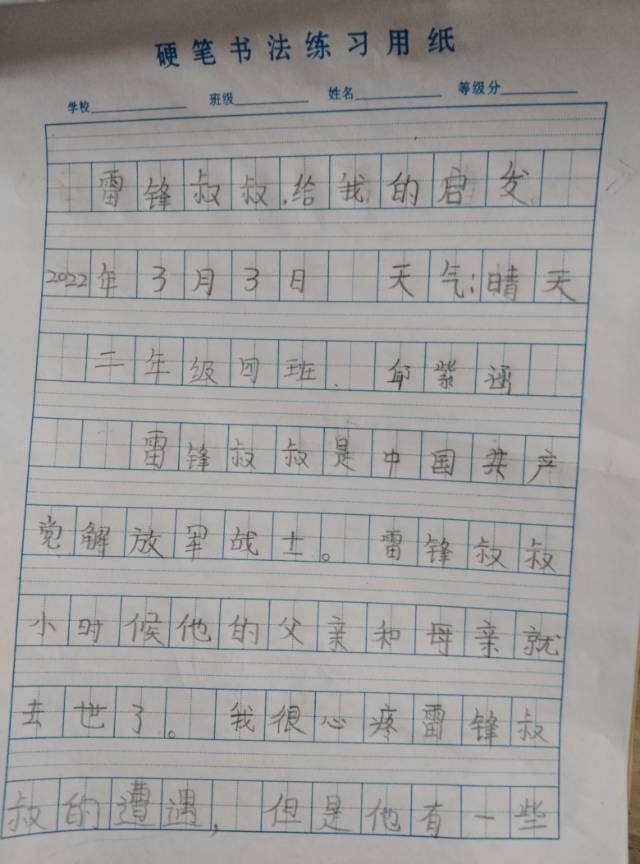 硬笔书法练习用纸
学校 班级 姓名 等级分
雷锋叔叔.给我的启发
2022年3月3日 天气:晴天
二年级四班、邱紫涵
雷锋叔叔是中国共产
党解放军战士。雷锋叔叔
小时候他的父亲和母亲就
去世了。我很心疼雷锋叔
叔的遭遇,但是他有一些